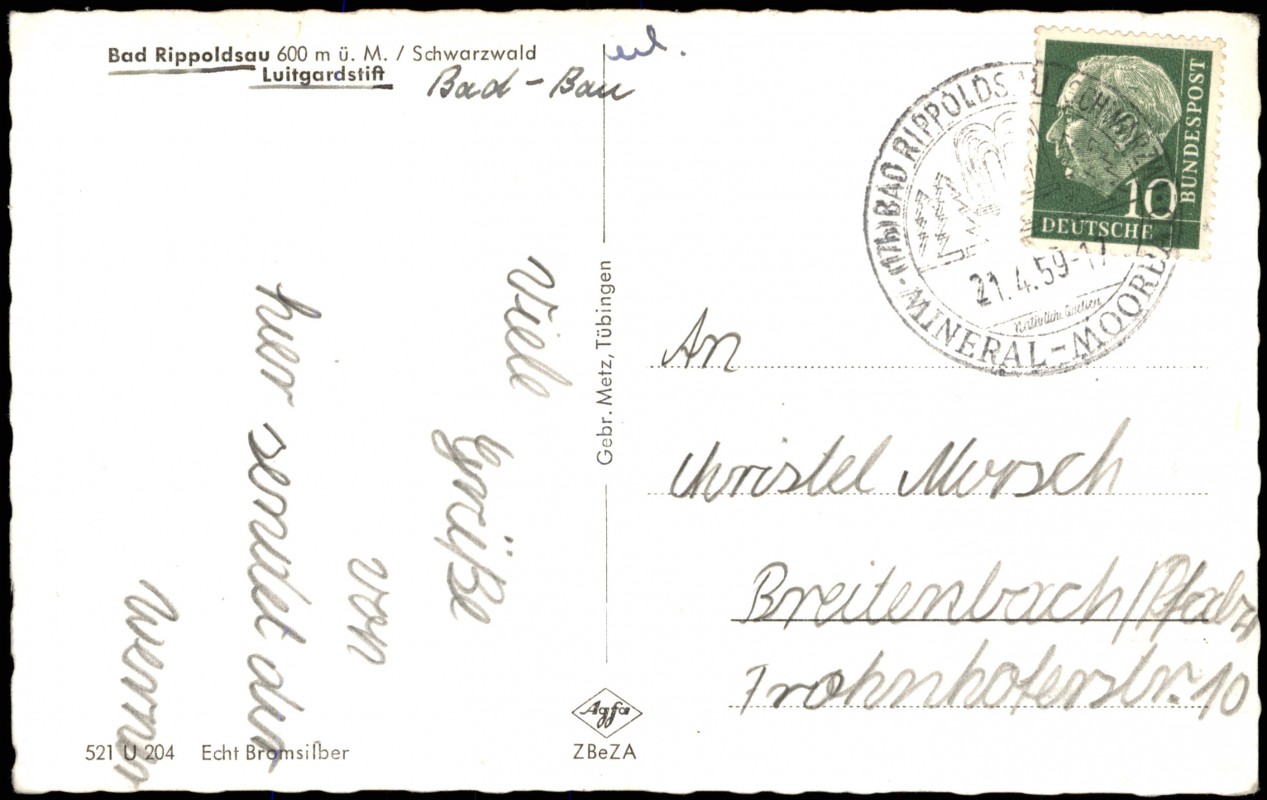 Bad Rippoldsau 600 m ü. M. / Schwarzwald
Luitgardstift
Bad - Bau
erl.
Viele
Grüße
von
hier sendet dir
Werner
521 U 204 Echt Bromsilber
Gebr. Metz, Tübingen
Agfa
ZBeZA
BAD RIPPOLDSAU SCHWARZW
MINERAL-MOORBAD
21.4.59-17
10
DEUTSCHE
BUNDESPOST
An
Christel Morsch
Breitenbach/Pfalz
Frohnhoferstr. 10